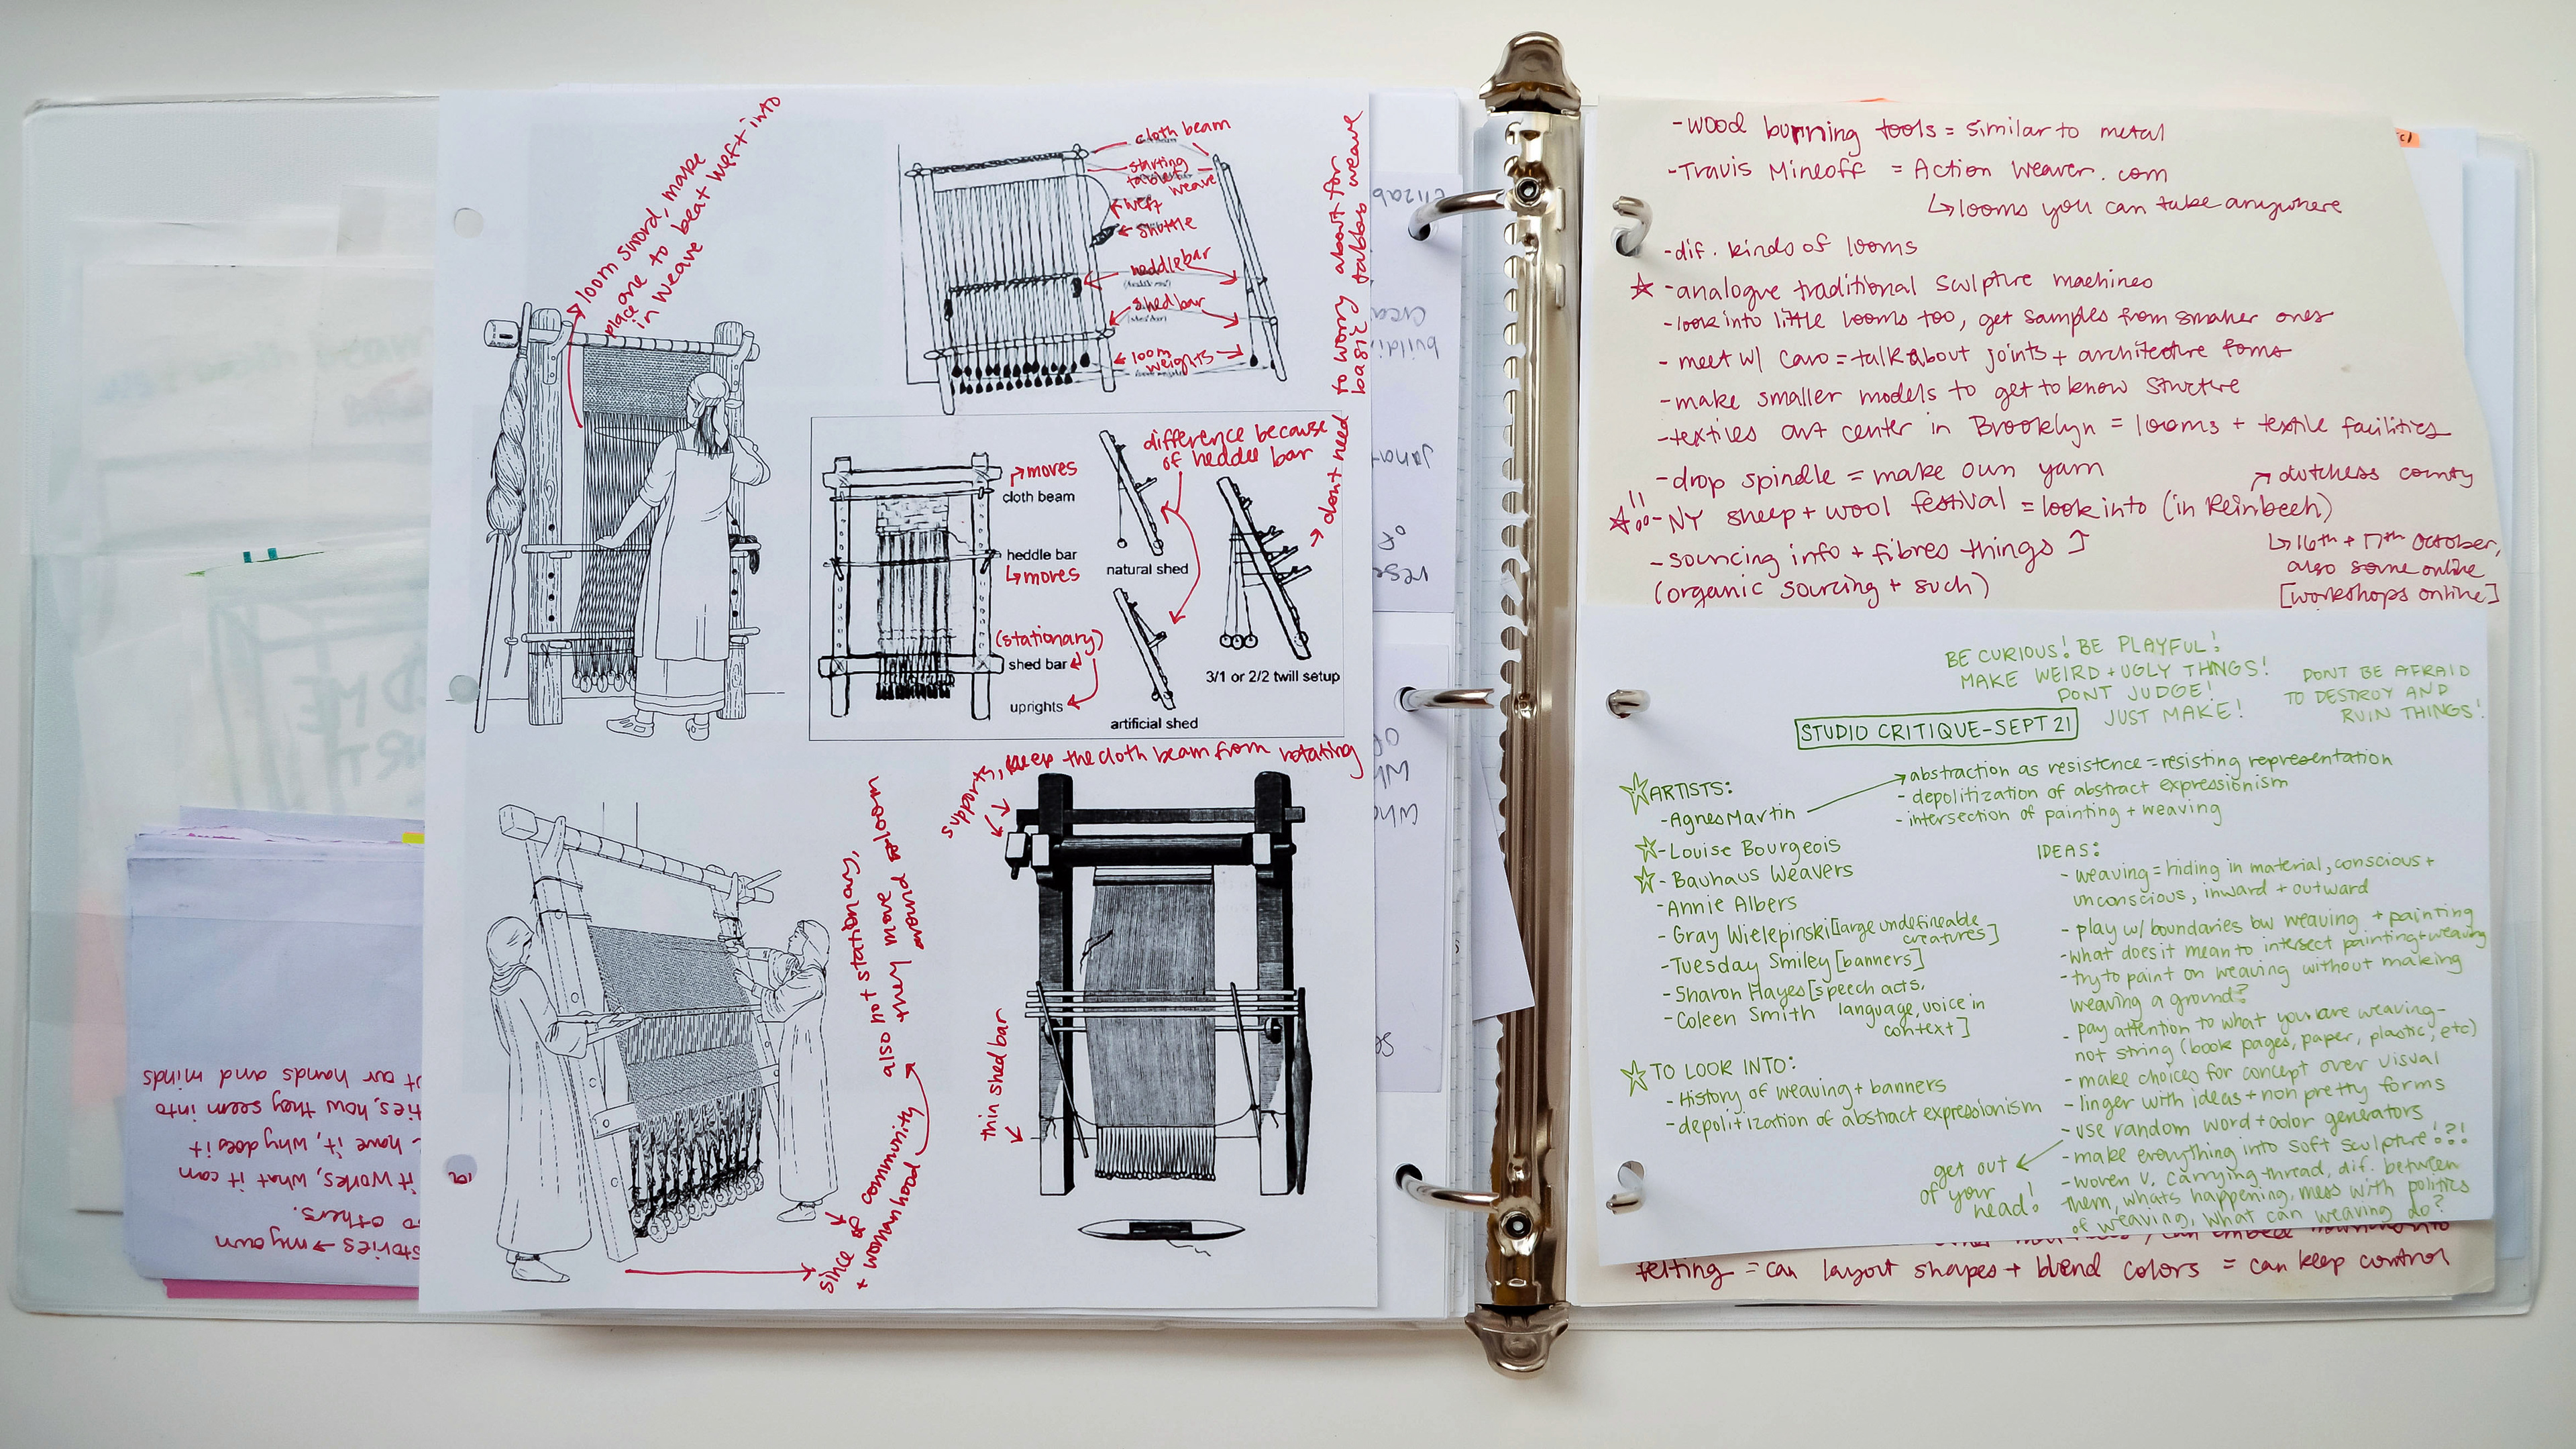 loom sword, make
place one to beat weft into
in weave
cloth beam
starting
tablet
weave
weft
shuttle
heddlebar
shed bar
loom
weights
→ dont need to worry about for
basic tabbas weave
moves
cloth beam
heddle bar
moves
(stationary)
shed bar
uprights
difference because
of heddle bar
natural shed
artificial shed
3/1 or 2/2 twill setup
supports, keep the cloth beam from rotating
thin shed bar
also not stationary,
they move around loom
since of community
+ womanhood
stories → my own
to others.
it works, what it can
- have it, why does it
ties, how they seem into
our hands and minds
-wood burning tools = similar to metal
-Travis Mineoff = Action Weaver.com
↳ looms you can take anywhere
-dif. kinds of looms
☆ -analogue traditional sculpture machines
-look into little looms too, get samples from smaller ones
- meet w/ caro = talk about joints + architecture foms
-make smaller models to get to know structre
-textiles art center in Brooklyn = looms + textile facilities
-drop spindle = make own yarn
↗ dutchess county
☆ -NY sheep + wool festival = look into (in Reinbech)
-sourcing info + fibres things
↳ 16th + 17th october,
also some online
(organic sourcing + such)
[workshops online]
BE CURIOUS! BE PLAYFUL!
MAKE WEIRD + UGLY THINGS!
DONT JUDGE!
JUST MAKE!
DONT BE AFRAID
TO DESTROY AND
RUIN THINGS!
STUDIO CRITIQUE-SEPT 21
☆ARTISTS:
-Agnes Martin
→abstraction as resistence = resisting representation
- depolitization of abstract expressionism
- intersection of painting + weaving
☆-Louise Bourgeois
☆- Bauhaus Weavers
-Annie Albers
- Gray Wielepinski [large undefineable
creatures]
-Tuesday Smiley [banners]
-Sharon Hayes [speech acts,
-Coleen Smith language, voice in
context]
☆TO LOOK INTO:
- History of weaving + banners
-depolitization of abstract expressionism
IDEAS:
- weaving = hiding in material, conscious +
unconscious, inward + outward
- play w/ boundaries bw weaving + painting
-what does it mean to intersect painting + weaving
-try to paint on weaving without making
weaving a ground?
- pay attention to what you are weaving-
not string (book pages, paper, plastic, etc)
- make choices for concept over visual
- linger with ideas + non pretty forms
-use random word + color generators
get out
of your
head!
-make everything into soft sculpture!?!
-woven v. carrying thread, dif. between
them, whats happening, mess with politics
of weaving, what can weaving do?
felting = can layout shapes + blend colors = can keep control